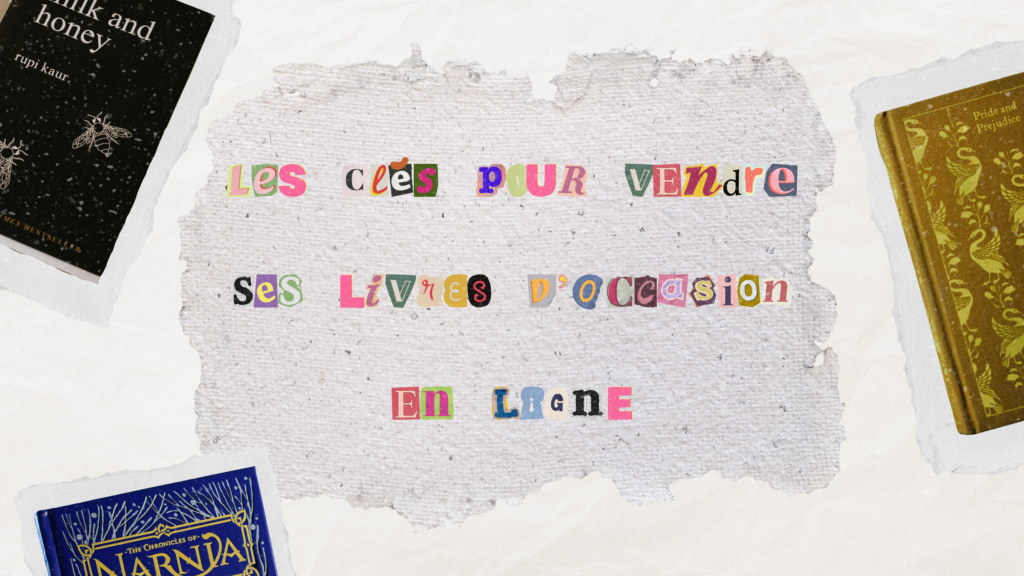 milk and
honey
rupi kaur.
LES CLÉS POUR VENDRE
SES LIVRES D'OCCASION
EN LIGNE
Pride and
Prejudice
THE CHRONICLES OF
NARNIA